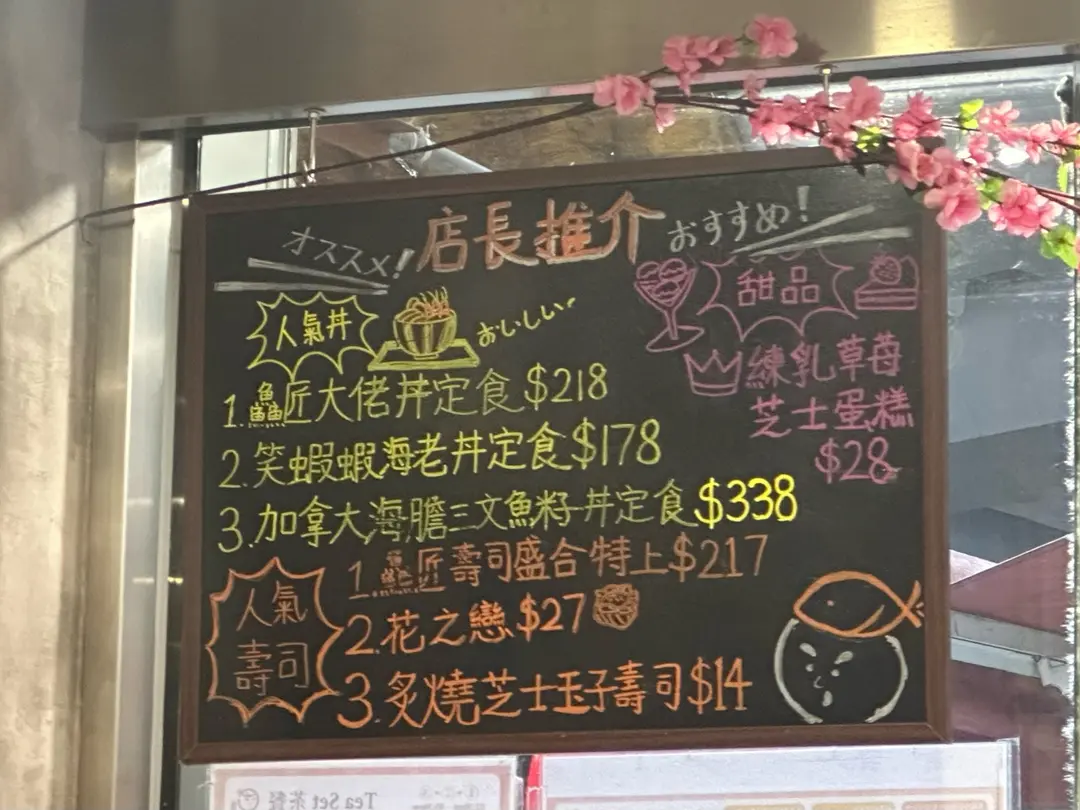 オススメ! 店長推介 おすすめ!
人氣丼 おいしい
1.鱻匠大佬丼定食 $218
2.笑蝦蝦海老丼定食 $178
3.加拿大海膽三文魚籽丼定食 $338
甜品
練乳草苺
芝士蛋糕
$28
人氣
壽司
1.鱻匠壽司盛合特上 $217
2.花之戀 $27
3.炙燒芝士玉子壽司 $14
Tea Set 茶餐